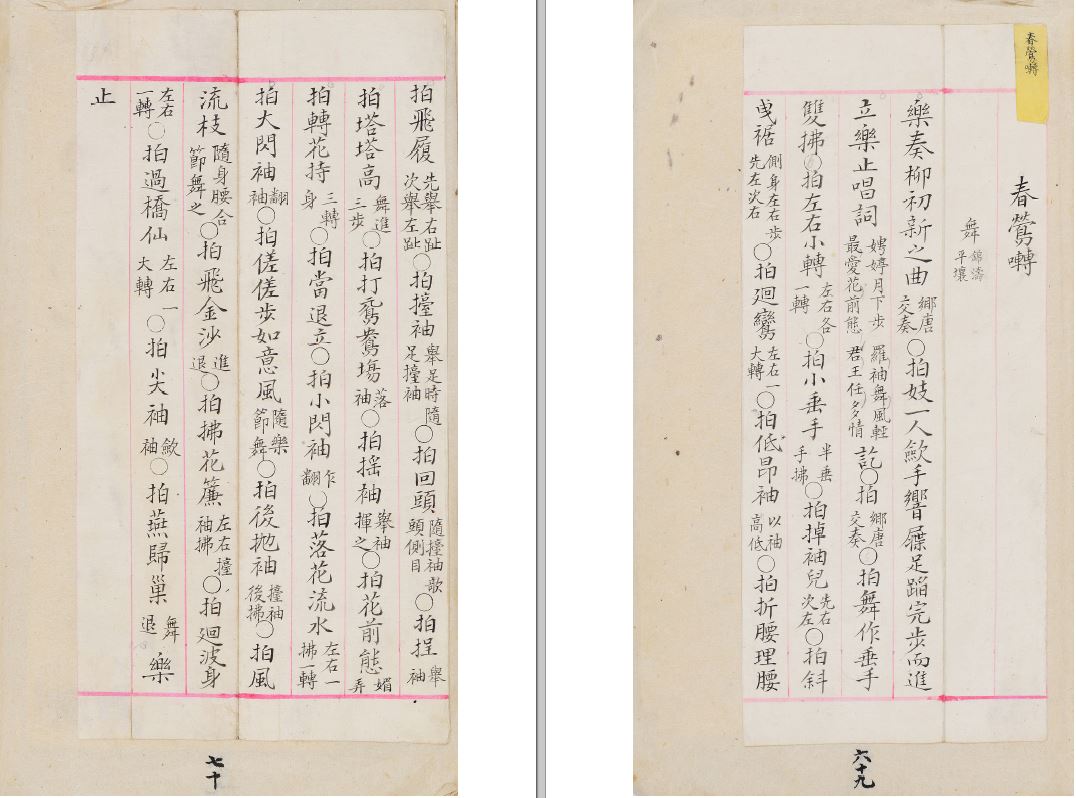 春鶯囀
春鶯囀
舞 錦濤 平壤
樂奏柳初新之曲 鄉唐交奏 ○拍妓一人斂手響屧足蹈完步而進
立樂止唱詞 娉婷月下步 羅袖舞風輕 最愛花前態 君王任多情 訖○拍 鄉唐交奏 ○拍舞作垂手
雙拂○拍左右小轉 左右各一轉 ○拍小垂手 半垂手拂 ○拍掉袖兒 先右次左 ○拍斜
曳裾 側身左右步先左次右 ○拍廻鸞 左右一大轉 ○拍低昂袖 以袖高低 ○拍折腰理腰
六十九
拍飛履 先舉右趾次舉左趾 ○拍擡袖 舉足時隨足擡袖 ○拍回頭 隨擡袖歌頭側目 ○拍捏 舉袖
拍塔塔高 舞進三步 ○拍打鴛鴦場 落袖 ○拍搖袖 舉袖揮之 ○拍花前態 媚弄
拍轉花持 三轉身 ○拍當退立○拍小閃袖 乍翻 ○拍落花流水 左右一拂一轉
拍大閃袖 翻袖 ○拍傞傞步如意風 隨樂節舞 ○拍後拋袖 擡袖後拂 ○拍風
流枝 隨身腰合節舞之 ○拍飛金沙 進退 ○拍拂花簾 左右擡袖拂 ○拍廻波身
左右一轉 ○拍過橋仙 左右一大轉 ○拍尖袖 斂袖 ○拍燕歸巢 舞退 樂
止
七十